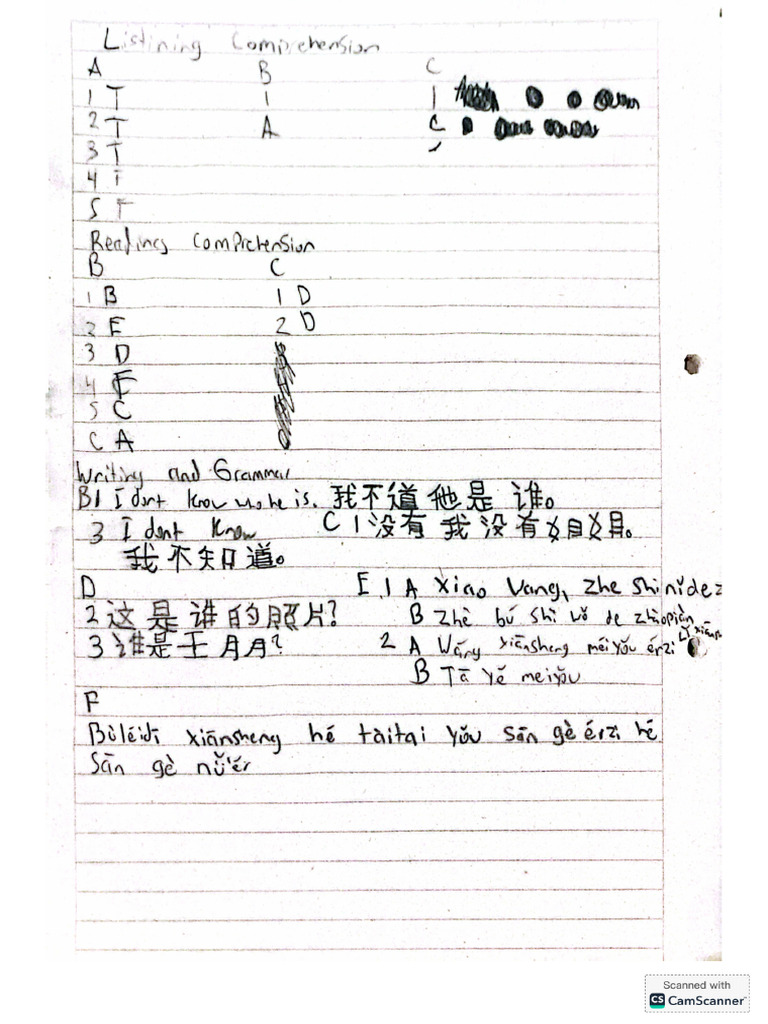 Listining Comprehension
A B C
1 T 1 1
2 T A C
3 T
4 F
5 F
Reading Comprehension
B C
1 B 1 D
2 E 2 D
3 D
4 F
5 C
C A
Writing and Grammar
B1 I dont know who he is. 我不道他是谁。
3 I dont know C 1 没有 我没有
我不知道。
D E.1 A Xiao Wang, zhe shi nǐ de z
2 这是谁的照片? B Zhè bú shì wǒ de zhàopiàn
3 谁是王月月? 2 A Wáng xiānsheng méiyǒu érzi Lǐ xiānsh
B Tā yě meiyǒu
F
Bùléidì xiānsheng hé tàitai yǒu sān gè érzi hé
Sān gè nǚ'ér
Scanned with
CS CamScanner